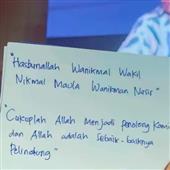 "Hasbunallah Wanikmal Wakil
Nikmal Maula Wanikman Nasir"
"Cukuplah Allah Menjadi penolong Kami
dan Allah adalah Sebaik-baiknya
Pelindung"